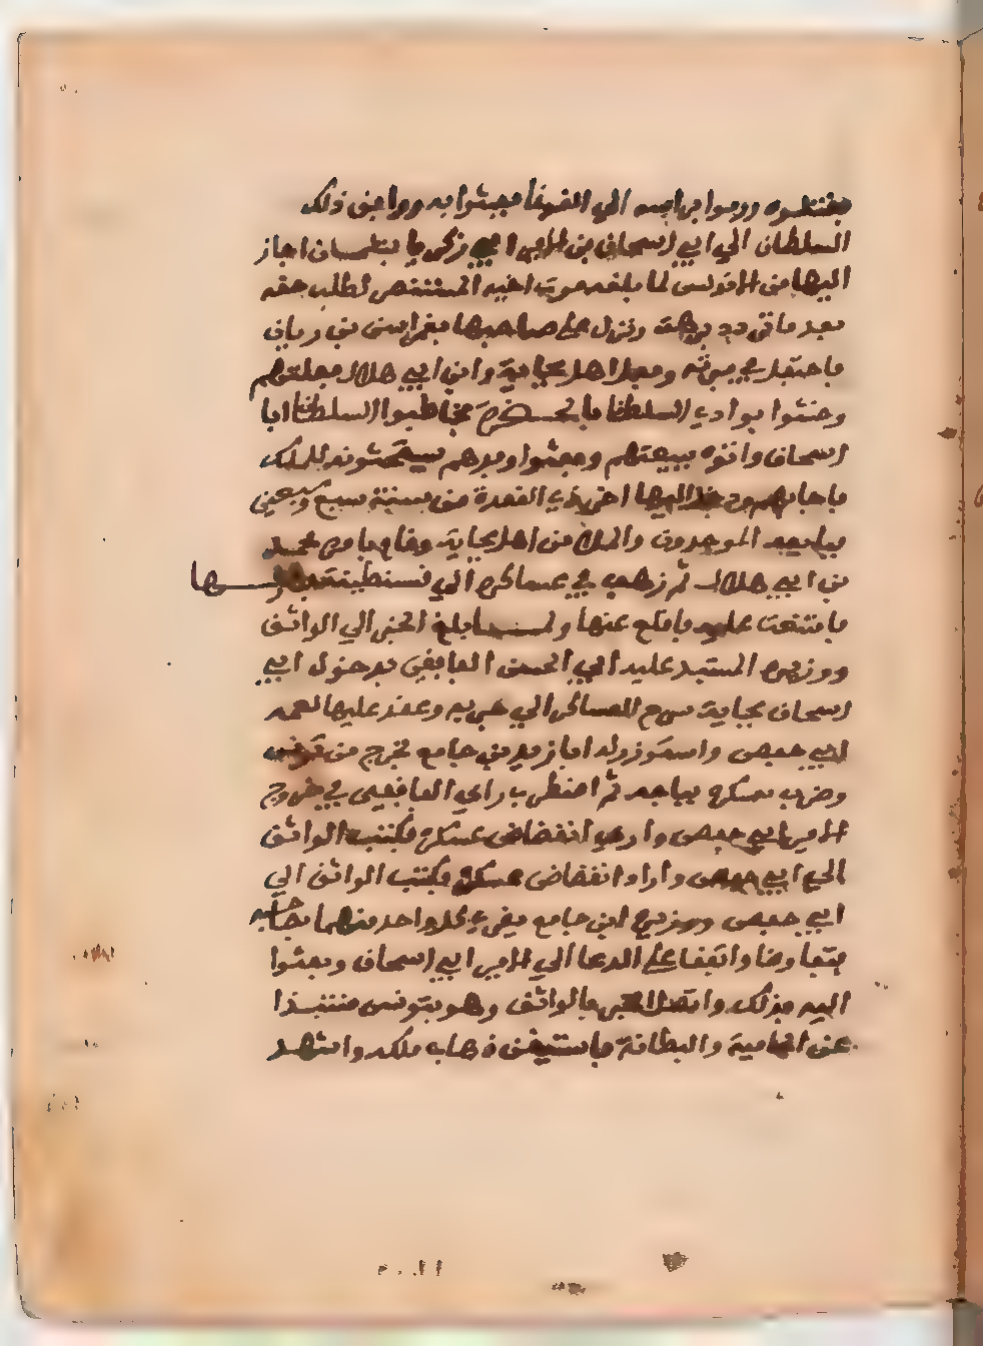 فقتلوه ورموا براسه الي الغوغا فعبثوا به ووافق ذلك
السلطان الي ابي اسحاق بن الامير ابي زكريا بتلمسان اجاز
اليها من الاندلس لما بلغه موت اخيه المستنصر لطلب حقه
بعد ما تردد برهة ونزل على صاحبها يغمراسن بن زيان
فاحتفل في مبرته وفعل اهل بجاية وابن ابي هلال فعلتهم
وخشوا بوادر السلطان بالحضرة فخاطبوا السلطان ابا
اسحاق واتوه ببيعتهم وبعثوا وفدهم يستحثونه للملك
فاجابهم ودخل اليها اخر ذي القعدة من سنة سبع وسبعين
فبايعه الموحدون والملا من اهل بجاية وقام بامره محمد
بن ابي هلال ثم زحف في عساكره الي قسنطينة
فامتنعت عليه فاقلع عنها ولما بلغ الخبر الي الواثق
ووزيره المستبد عليه ابي الحسن الغافقي بدخول ابي
اسحاق بجاية سرح العساكر الي حربه وعقد عليها لعمه
ابي حفص واستوزر له ابا زيد بن جامع فخرج من تونس
وضرب معسكره بباجه ثم اضطرب راي الغافقي في خروج
الامير ابي حفص واراد انفضاض عسكره فكتب الواثق
الي ابي حفص واراد انفضاض عسكره فكتب الواثق الي
ابي حفص ووزيره ابن جامع يغري كل واحد منهما بصاحبه
فتفاوضا واتفقا على الدعا الي الامير ابي اسحاق وبعثوا
اليه بذلك واتصل الخبر بالواثق وهو بتونس منتبذا
عن الحامية والبطانة فاستيقن ذهاب ملكه واشهد